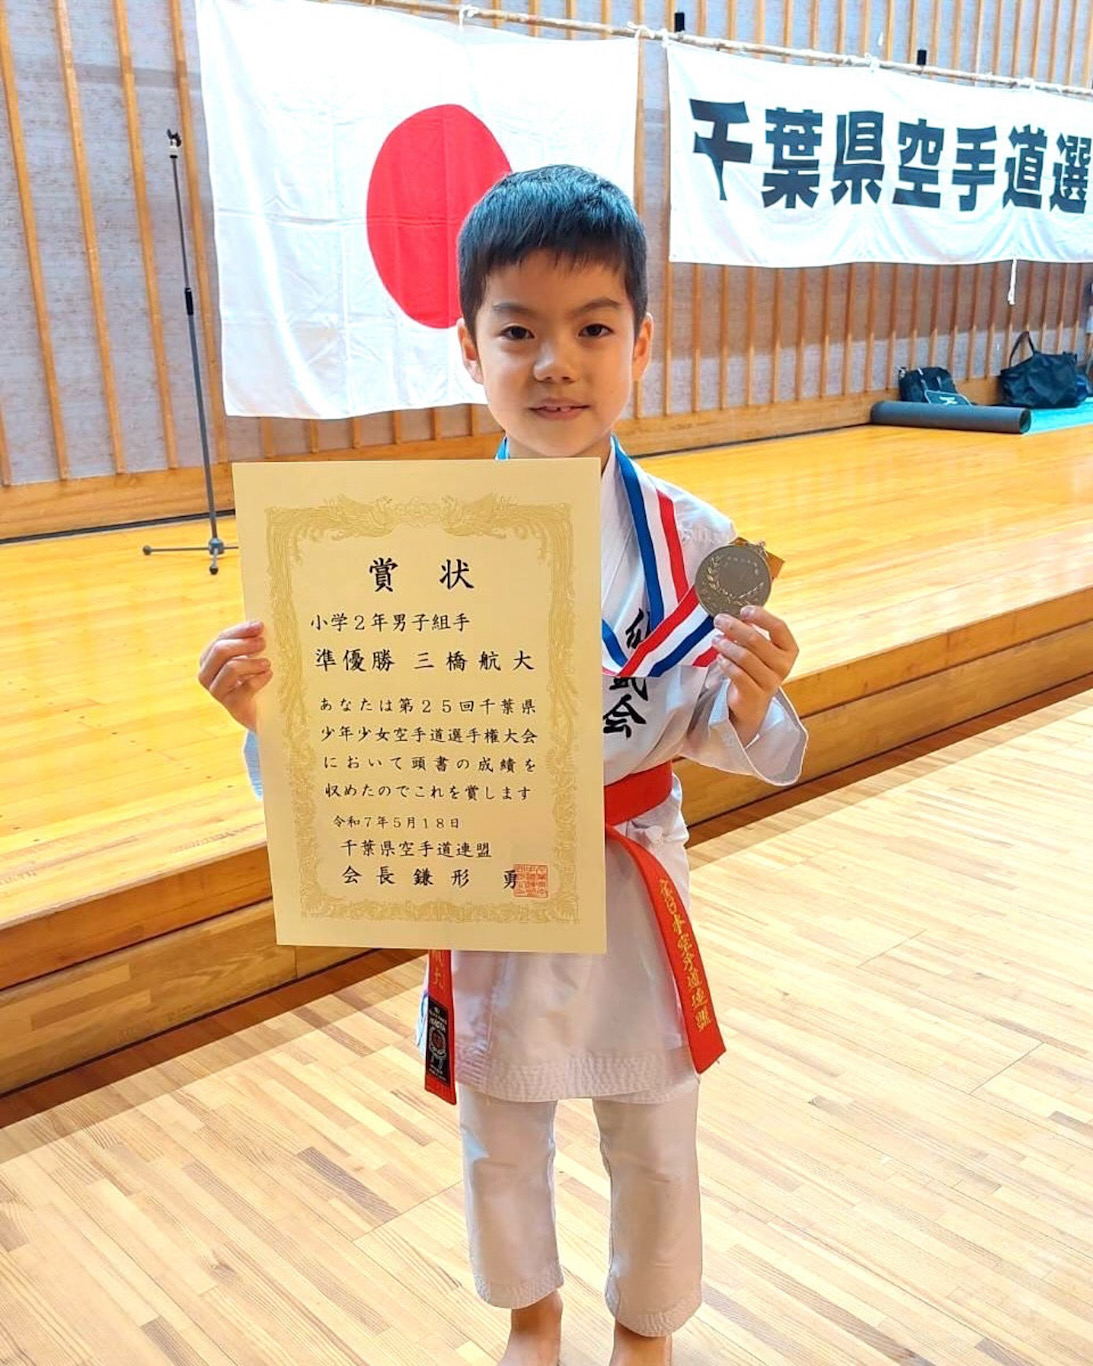 千葉県空手道選
賞状
小学2年男子組手
準優勝 三橋航大
あなたは第25回千葉県
少年少女空手道選手権大会
において頭書の成績を
収めたのでこれを賞します
令和7年5月18日
千葉県空手道連盟
会長 鎌形 勇
武会
全日本空手道連盟
航大